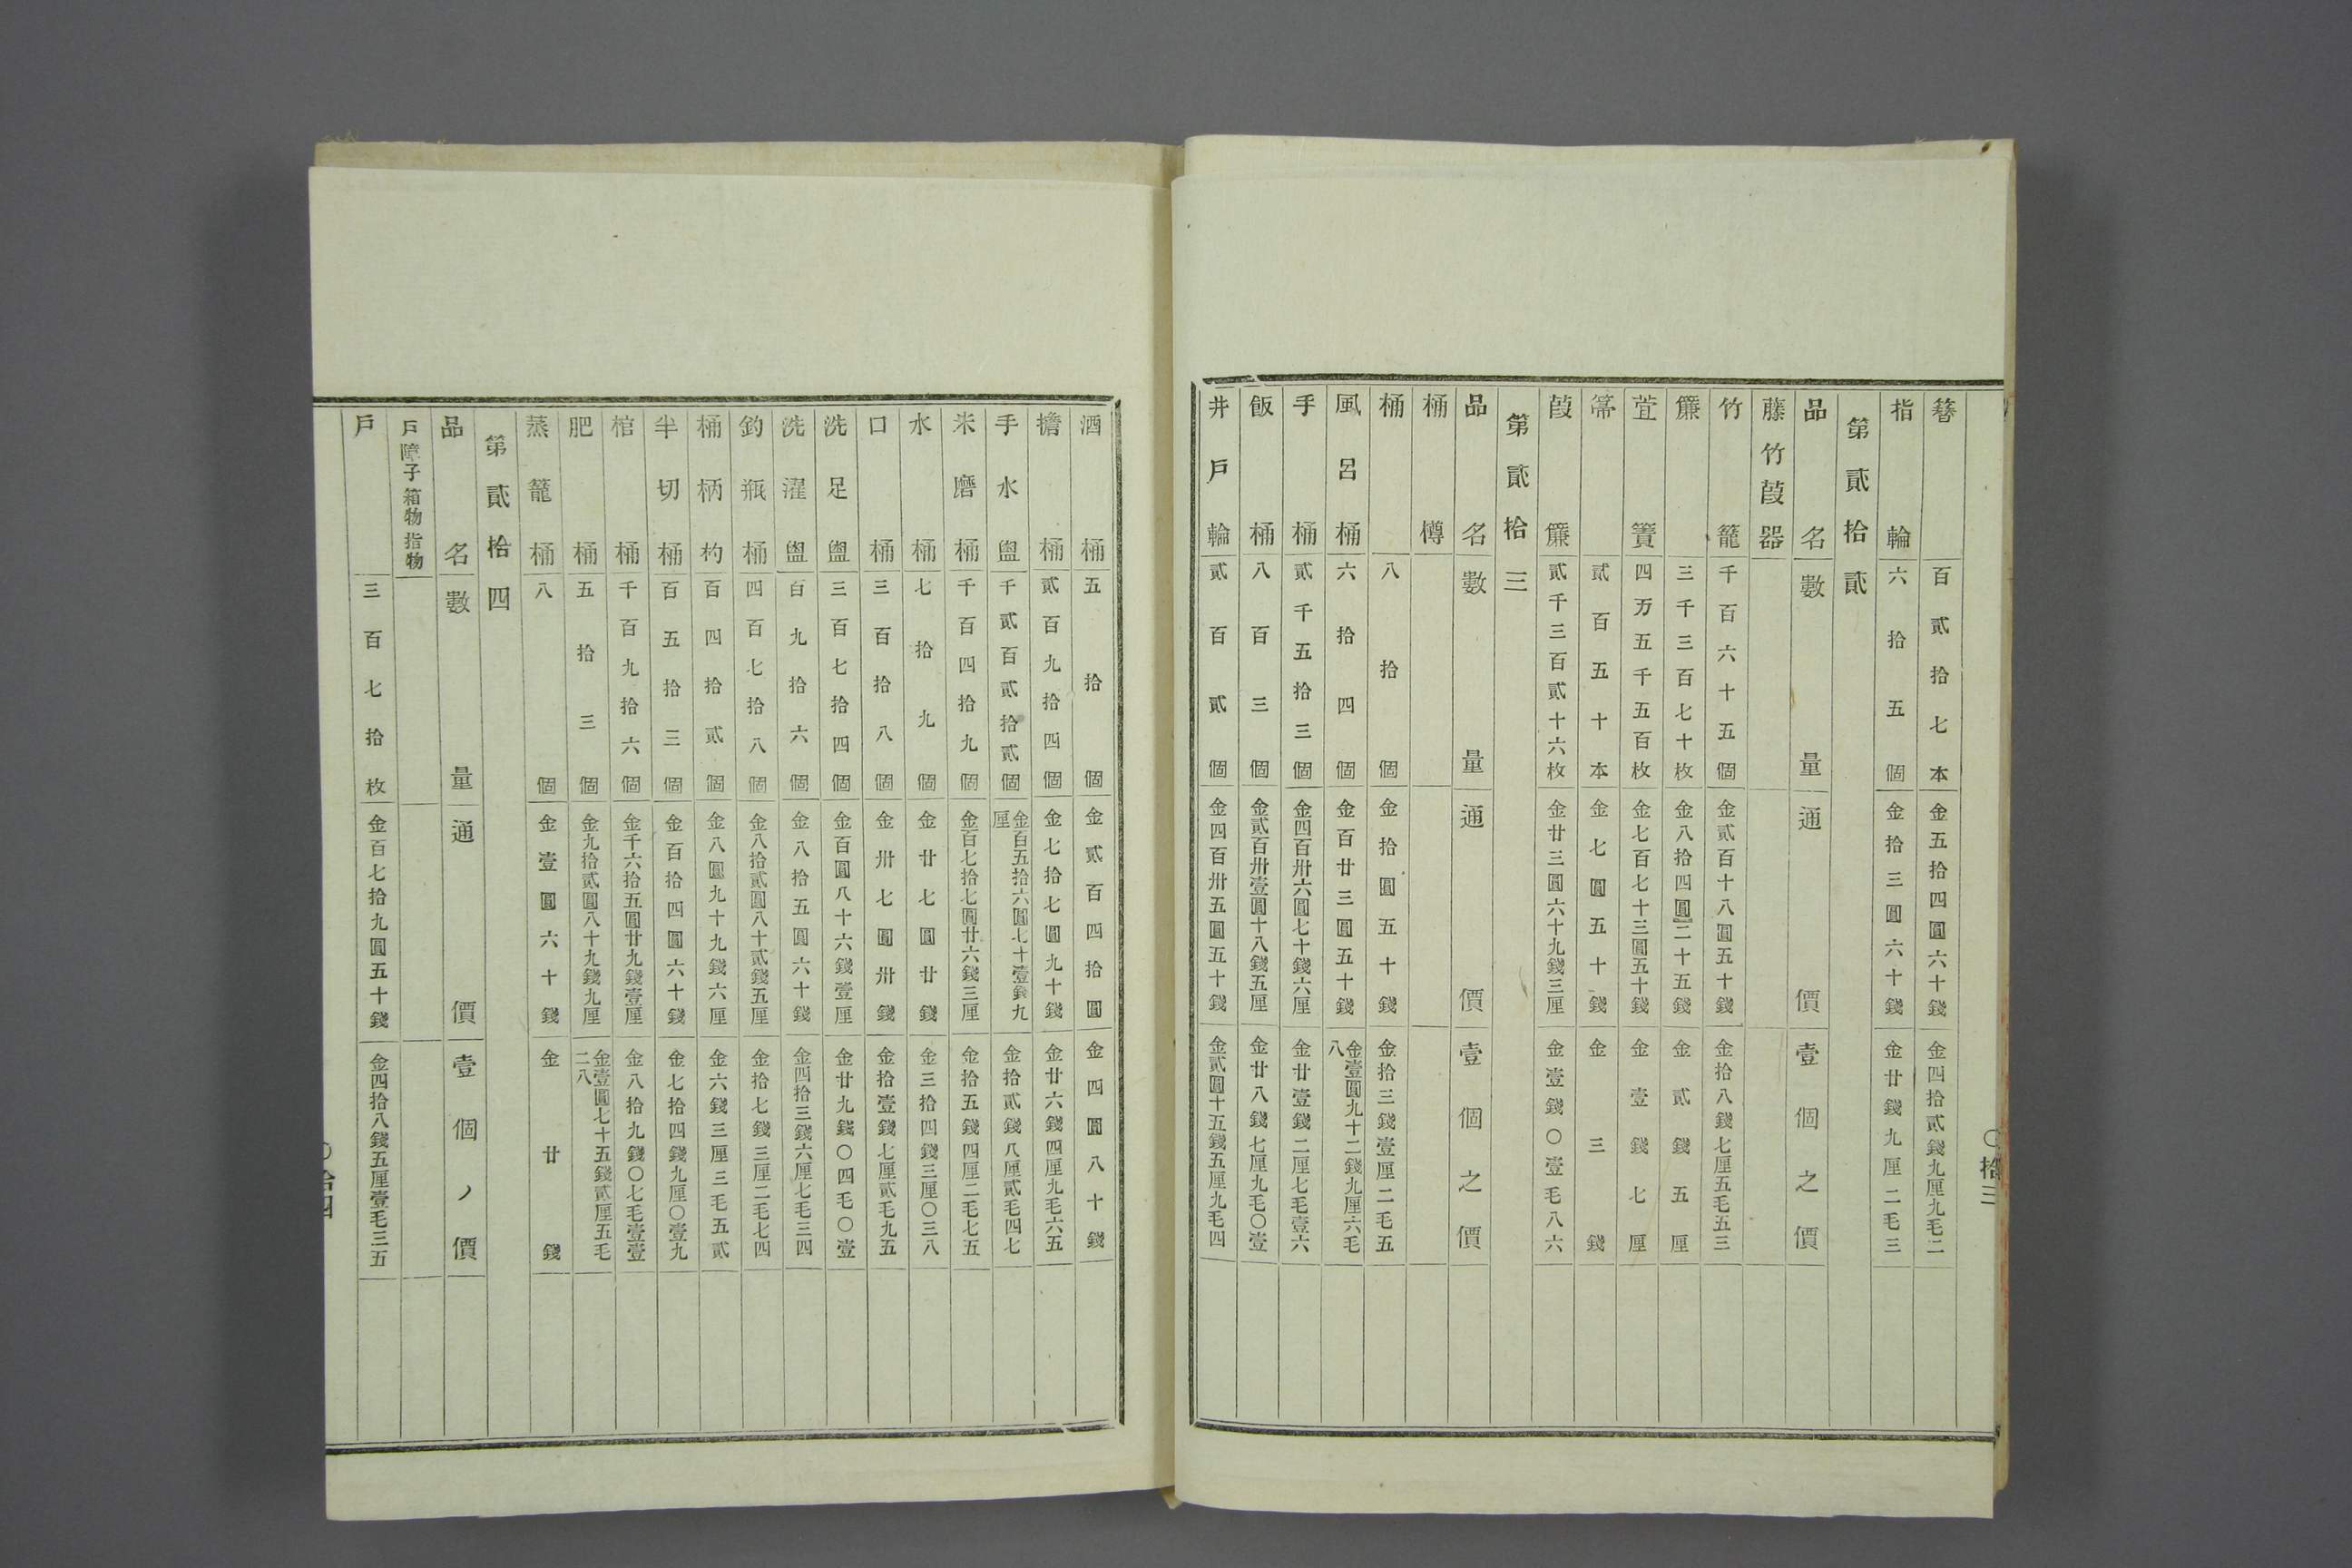 簪 百貳拾七本 金五拾四圓六十錢 金四拾貳錢九厘九毛二
指輪 六拾五個 金拾三圓六十錢 金廿錢九厘二毛三
第貳拾貳
品名 數量 通價 壹個之價
藤竹葭器
竹籠 千百六十五個 金貳百十八圓五十錢 金拾八錢七厘五毛五三
簾 三千三百七十枚 金八拾四圓二十五錢 金貳錢五厘
萓簀 四万五千五百枚 金七百七十三圓五十錢 金壹錢七厘
箒 貳百五十本 金七圓五十錢 金三錢
葭簾 貳千三百貳十六枚 金廿三圓六十九錢三厘 金壹錢〇壹毛八六
第貳拾三
品名 數量 通價 壹個之價
桶樽
桶 八拾個 金拾圓五十錢 金拾三錢壹厘二毛五
風呂桶 六拾四個 金百廿三圓五十錢 金壹圓九十二錢九厘六毛八
手桶 貳千五拾三個 金四百卅六圓七十錢六厘 金廿壹錢二厘七毛壹六
飯桶 八百三個 金貳百卅壹圓十八錢五厘 金廿八錢七厘九毛〇壹
井戶輪 貳百貳個 金四百卅五圓五十錢 金貳圓十五錢五厘九毛四
〇拾三
酒桶 五拾個 金貳百四拾圓 金四圓八十錢
擔桶 貳百九拾四個 金七拾七圓九十錢 金廿六錢四厘九毛六五
手水盥 千貳百貳拾貳個 金百五拾六圓七十壹錢九厘 金拾貳錢八厘貳毛四七
米磨桶 千百四拾九個 金百七拾七圓廿六錢三厘 金拾五錢四厘二毛七五
水桶 七拾九個 金廿七圓廿錢 金三拾四錢三厘〇三八
口桶 三百拾八個 金卅七圓卅錢 金拾壹錢七厘貳毛九五
洗足盥 三百七拾四個 金百圓八十六錢壹厘 金廿九錢〇四毛〇壹
洗濯盥 百九拾六個 金八拾五圓六十錢 金四拾三錢六厘七毛三四
釣瓶桶 四百七拾八個 金八拾貳圓八十貳錢五厘 金拾七錢三厘二毛七四
桶柄杓 百四拾貳個 金八圓九十九錢六厘 金六錢三厘三毛五貳
半切桶 百五拾三個 金百拾四圓六十錢 金七拾四錢九厘〇壹九
棺桶 千百九拾六個 金千六拾五圓廿九錢壹厘 金八拾九錢〇七毛壹壹
肥桶 五拾三個 金九拾貳圓八十九錢九厘 金壹圓七十五錢貳厘五毛二八
蒸籠桶 八個 金壹圓六十錢 金廿錢
第貳拾四
品名 數量 通價 壹個ノ價
戶障子箱物指物
戶 三百七拾枚 金百七拾九圓五十錢 金四拾八錢五厘壹毛三五
〇拾四